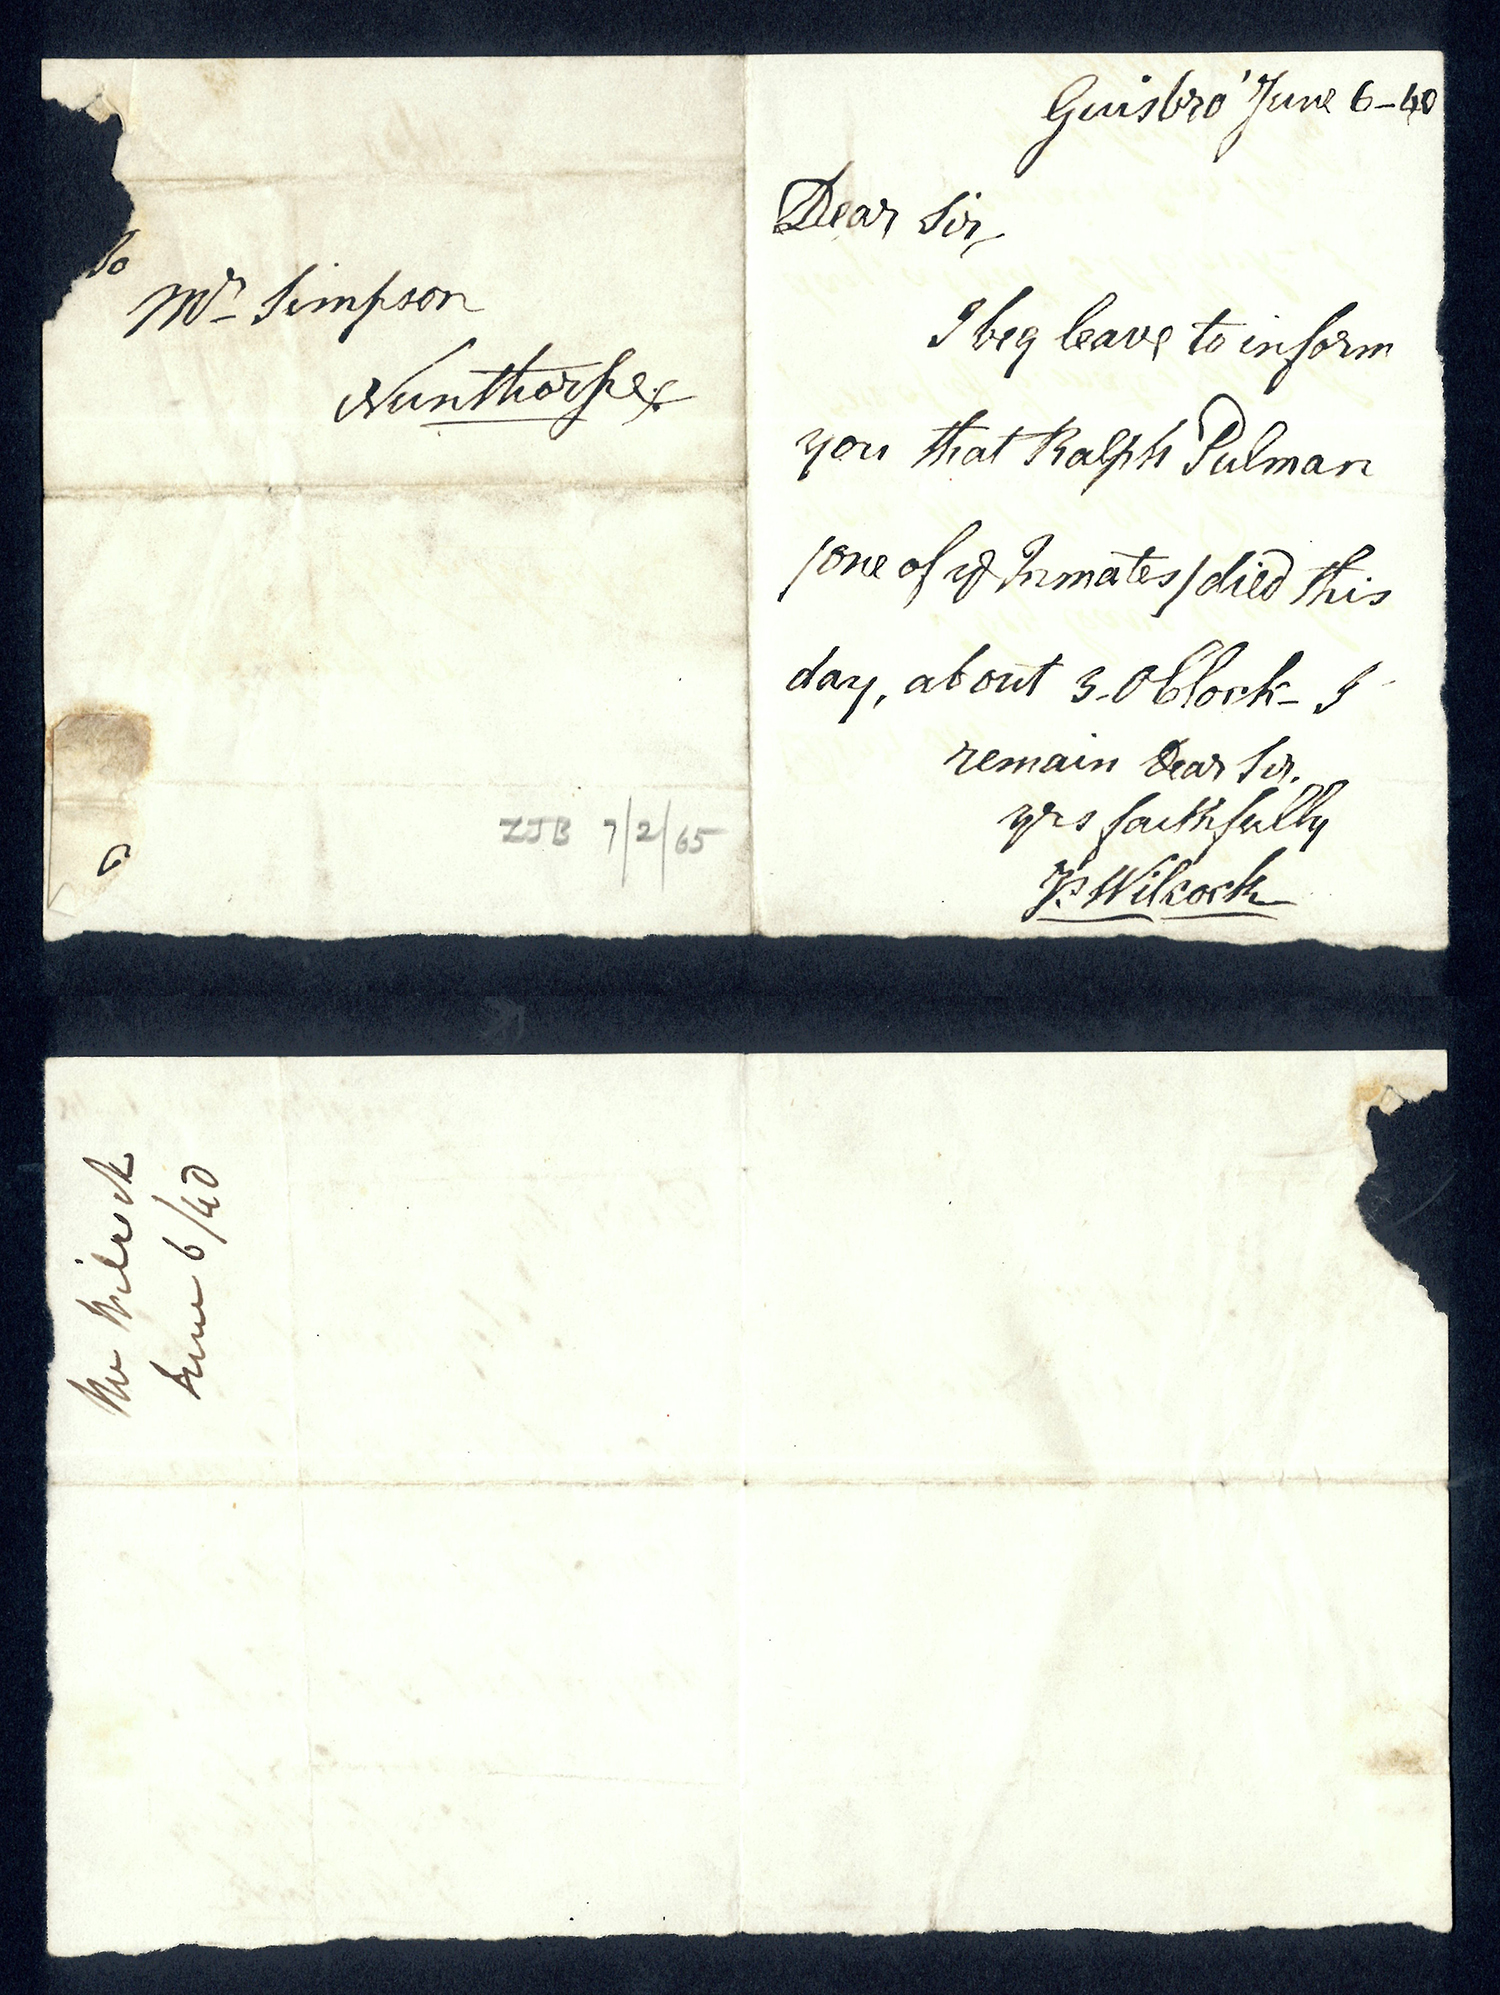 To
Mr Simpson
Nunthorpe
ZJB 7/2/65
Guisbro' June 6-40
Dear Sir,
I beg leave to inform
you that Ralph Pulman
/one of ye Inmates/ died this
day, about 3-OClock- I
remain Dear Sir.
yrs faithfully
Wilcock
Mr Wilcock
June 6/40